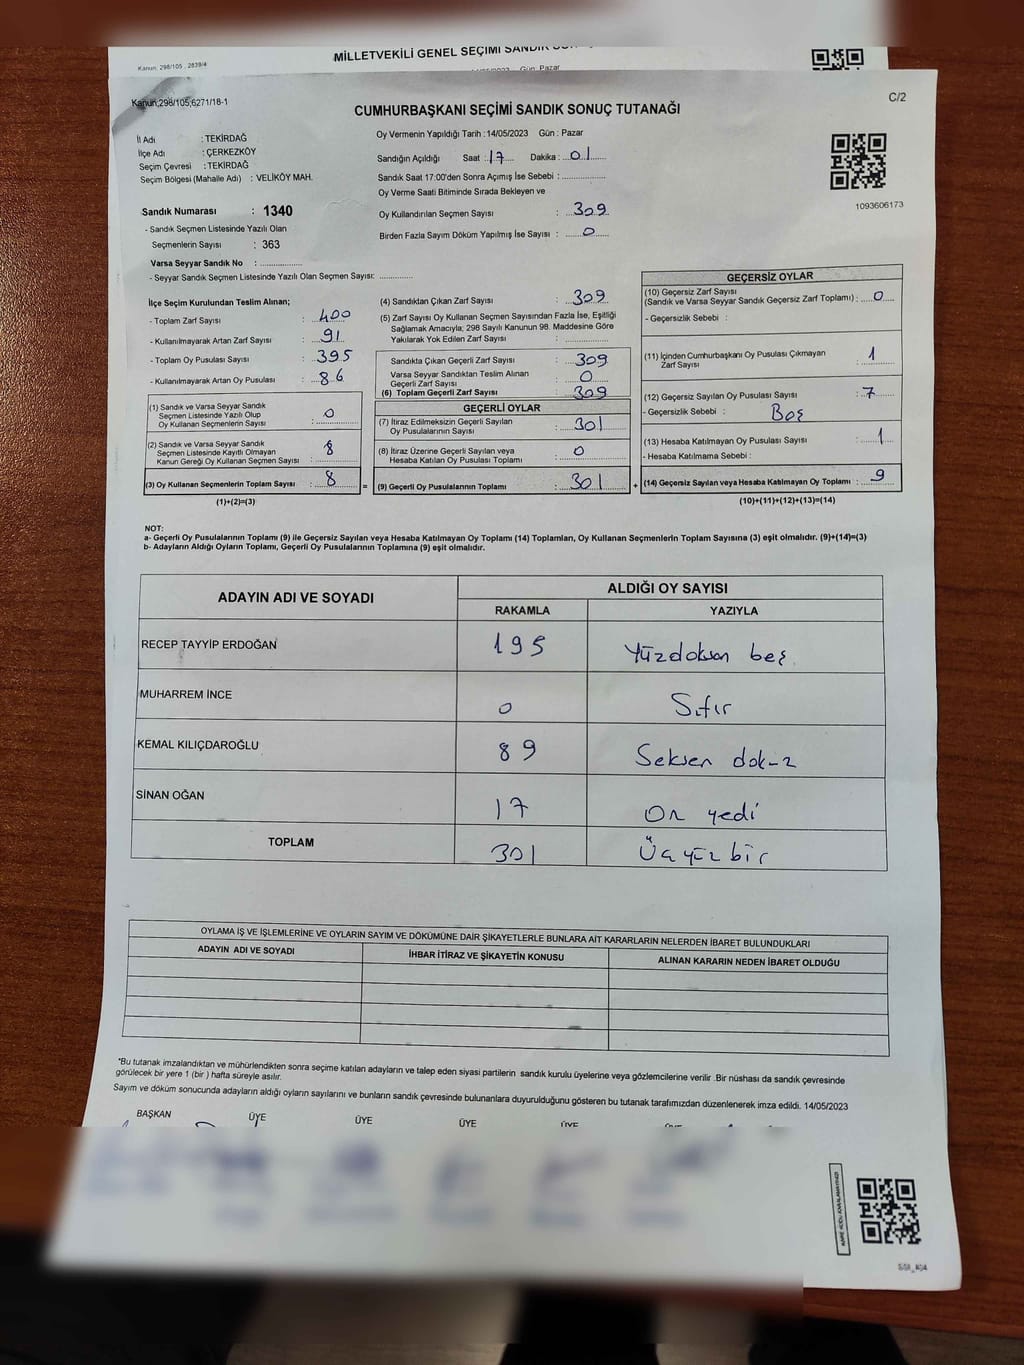 MİLLETVEKİLİ GENEL SEÇİMİ SANDIK
Kanun, 298/105 , 2839/4
Gün: Pazar
Kanun,298/105,6271/18-1
C/2
CUMHURBAŞKANI SEÇİMİ SANDIK SONUÇ TUTANAĞI
İl Adı : TEKİRDAĞ
İlçe Adı : ÇERKEZKÖY
Seçim Çevresi : TEKİRDAĞ
Seçim Bölgesi (Mahalle Adı) : VELİKÖY MAH.
Sandık Numarası : 1340
- Sandık Seçmen Listesinde Yazılı Olan
Seçmenlerin Sayısı : 363
Varsa Seyyar Sandık No : ..............
- Seyyar Sandık Seçmen Listesinde Yazılı Olan Seçmen Sayısı: ............
Oy Vermenin Yapıldığı Tarih : 14/05/2023 Gün : Pazar
Sandığın Açıldığı Saat : 17 Dakika : 01
Sandık Saat 17:00'den Sonra Açımış İse Sebebi : ..............
Oy Verme Saati Bitiminde Sırada Bekleyen ve
Oy Kullandırılan Seçmen Sayısı : 309
Birden Fazla Sayım Döküm Yapılmış İse Sayısı : 0
1093606173
İlçe Seçim Kurulundan Teslim Alınan;
- Toplam Zarf Sayısı : 400
- Kullanılmayarak Artan Zarf Sayısı : 91
- Toplam Oy Pusulası Sayısı : 395
- Kullanılmayarak Artan Oy Pusulası : 86
(1) Sandık ve Varsa Seyyar Sandık
Seçmen Listesinde Yazılı Olup
Oy Kullanan Seçmenlerin Sayısı : 0
(2) Sandık ve Varsa Seyyar Sandık
Seçmen Listesinde Kayıtlı Olmayan
Kanun Gereği Oy Kullanan Seçmen Sayısı : 8
(3) Oy Kullanan Seçmenlerin Toplam Sayısı : 8
(1)+(2)=(3)
(4) Sandıktan Çıkan Zarf Sayısı : 309
(5) Zarf Sayısı Oy Kullanan Seçmen Sayısından Fazla İse, Eşitliği
Sağlamak Amacıyla; 298 Sayılı Kanunun 98. Maddesine Göre
Yakılarak Yok Edilen Zarf Sayısı : ..............
Sandıkta Çıkan Geçerli Zarf Sayısı : 309
Varsa Seyyar Sandıktan Teslim Alınan
Geçerli Zarf Sayısı : 0
(6) Toplam Geçerli Zarf Sayısı : 309
GEÇERLİ OYLAR
(7) İtiraz Edilmeksizin Geçerli Sayılan
Oy Pusulalarının Sayısı : 301
(8) İtiraz Üzerine Geçerli Sayılan veya
Hesaba Katılan Oy Pusulası Toplamı : 0
= (9) Geçerli Oy Pusulalarının Toplamı : 301 +
GEÇERSİZ OYLAR
(10) Geçersiz Zarf Sayısı
(Sandık ve Varsa Seyyar Sandık Geçersiz Zarf Toplamı) : 0
- Geçersizlik Sebebi :
(11) İçinden Cumhurbaşkanı Oy Pusulası Çıkmayan
Zarf Sayısı : 1
(12) Geçersiz Sayılan Oy Pusulası Sayısı : 7
- Geçersizlik Sebebi : Boş
(13) Hesaba Katılmayan Oy Pusulası Sayısı : 1
- Hesaba Katılmama Sebebi :
(14) Geçersiz Sayılan veya Hesaba Katılmayan Oy Toplamı : 9
(10)+(11)+(12)+(13)=(14)
NOT:
a- Geçerli Oy Pusulalarının Toplamı (9) ile Geçersiz Sayılan veya Hesaba Katılmayan Oy Toplamı (14) Toplamları, Oy Kullanan Seçmenlerin Toplam Sayısına (3) eşit olmalıdır. (9)+(14)=(3)
b- Adayların Aldığı Oyların Toplamı, Geçerli Oy Pusulalarının Toplamına (9) eşit olmalıdır.
ADAYIN ADI VE SOYADI
ALDIĞI OY SAYISI
RAKAMLA YAZIYLA
RECEP TAYYİP ERDOĞAN 195 Yüzdoksan beş
MUHARREM İNCE 0 Sıfır
KEMAL KILIÇDAROĞLU 89 Seksen dokuz
SİNAN OĞAN 17 On yedi
TOPLAM 301 Üçyüzbir
OYLAMA İŞ VE İŞLEMLERİNE VE OYLARIN SAYIM VE DÖKÜMÜNE DAİR ŞİKAYETLERLE BUNLARA AİT KARARLARIN NELERDEN İBARET BULUNDUKLARI
ADAYIN ADI VE SOYADI İHBAR İTİRAZ VE ŞİKAYETİN KONUSU ALINAN KARARIN NEDEN İBARET OLDUĞU
*Bu tutanak imzalandıktan ve mühürlendikten sonra seçime katılan adayların ve talep eden siyasi partilerin sandık kurulu üyelerine veya gözlemcilerine verilir .Bir nüshası da sandık çevresinde
görülecek bir yere 1 (bir ) hafta süreyle asılır.
Sayım ve döküm sonucunda adayların aldığı oyların sayılarını ve bunların sandık çevresinde bulunanlara duyurulduğunu gösteren bu tutanak tarafımızdan düzenlenerek imza edildi. 14/05/2023
BAŞKAN ÜYE ÜYE ÜYE ÜYE ÜYE